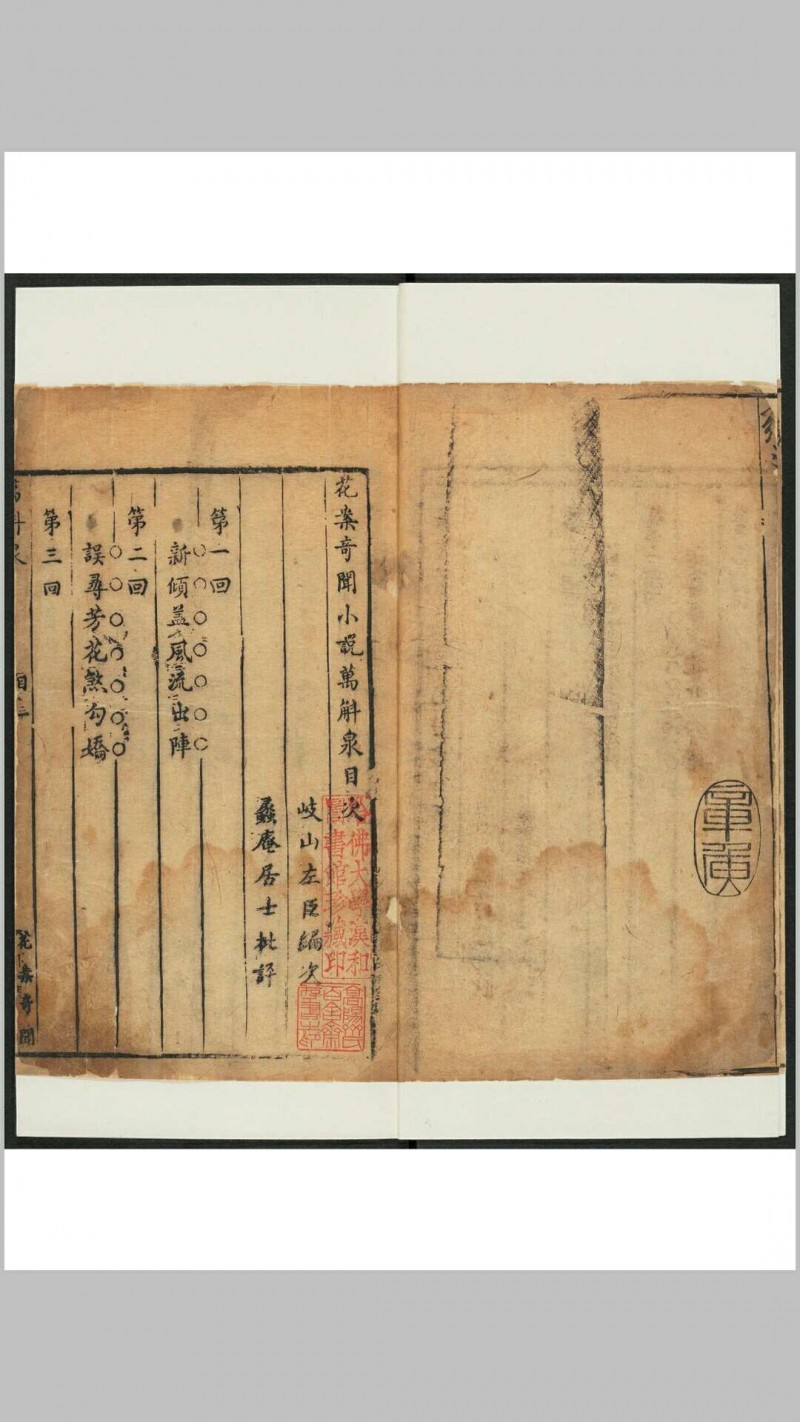 花案奇聞小説萬斛泉目次
岐山左臣編次
蠡庵居士批評
第一回
新傾盖風流出陣
第二回
誤尋芳花煞勾嬌
第三回
萬斛泉
目
花案奇聞
哈佛大學漢和
圖書館珍藏印